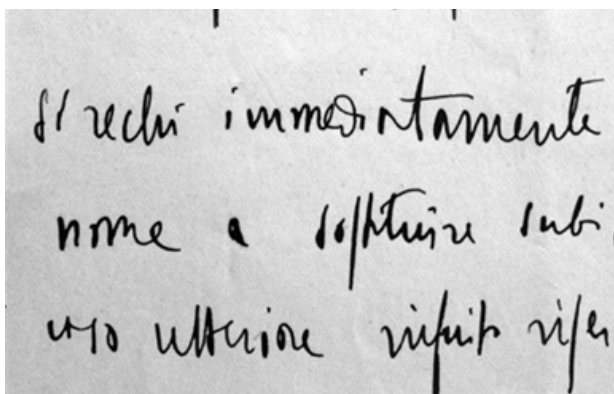 si rechi immediatamente
nome e sostituire subi
caso ulteriore rifiuto rifer